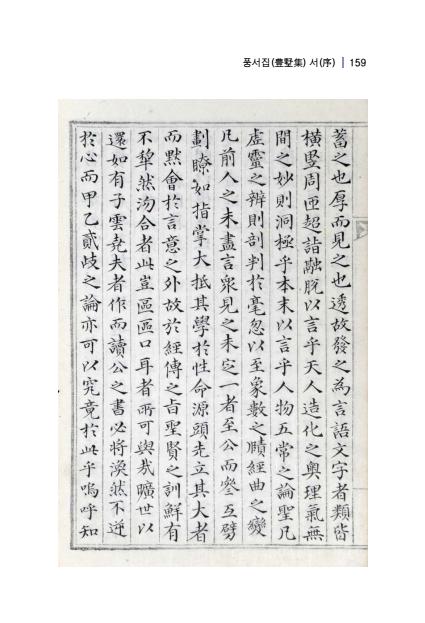 풍서집(豊墅集) 서(序) | 159
蓄之也厚而見之也透故發之為言語文字者類皆
橫竪周匝超詣融脫以言乎天人造化之奧理氣無
間之妙則洞極乎本末以言乎人物五常之論聖凡
虛靈之辨則剖判於毫忽以至象數之賾經曲之變
凡前人之未盡言衆見之未定一者至公而參互劈
劃瞭如指掌大抵其學於性命源頭先立其大者
而默會於言意之外故於經傳之旨聖賢之訓鮮有
不犂然沕合者此豈區區口耳者所可與哉曠世以
還如有子雲堯夫者作而讀公之書必將渙然不逆
於心而甲乙貳歧之論亦可以究竟於此乎嗚呼知